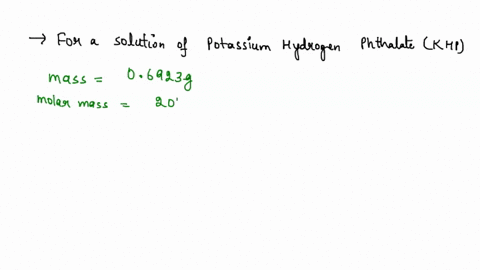 → For a solution of Potassium Hydrogen Phthalate (KHP)
mass = 0.6923g
molar mass = 20